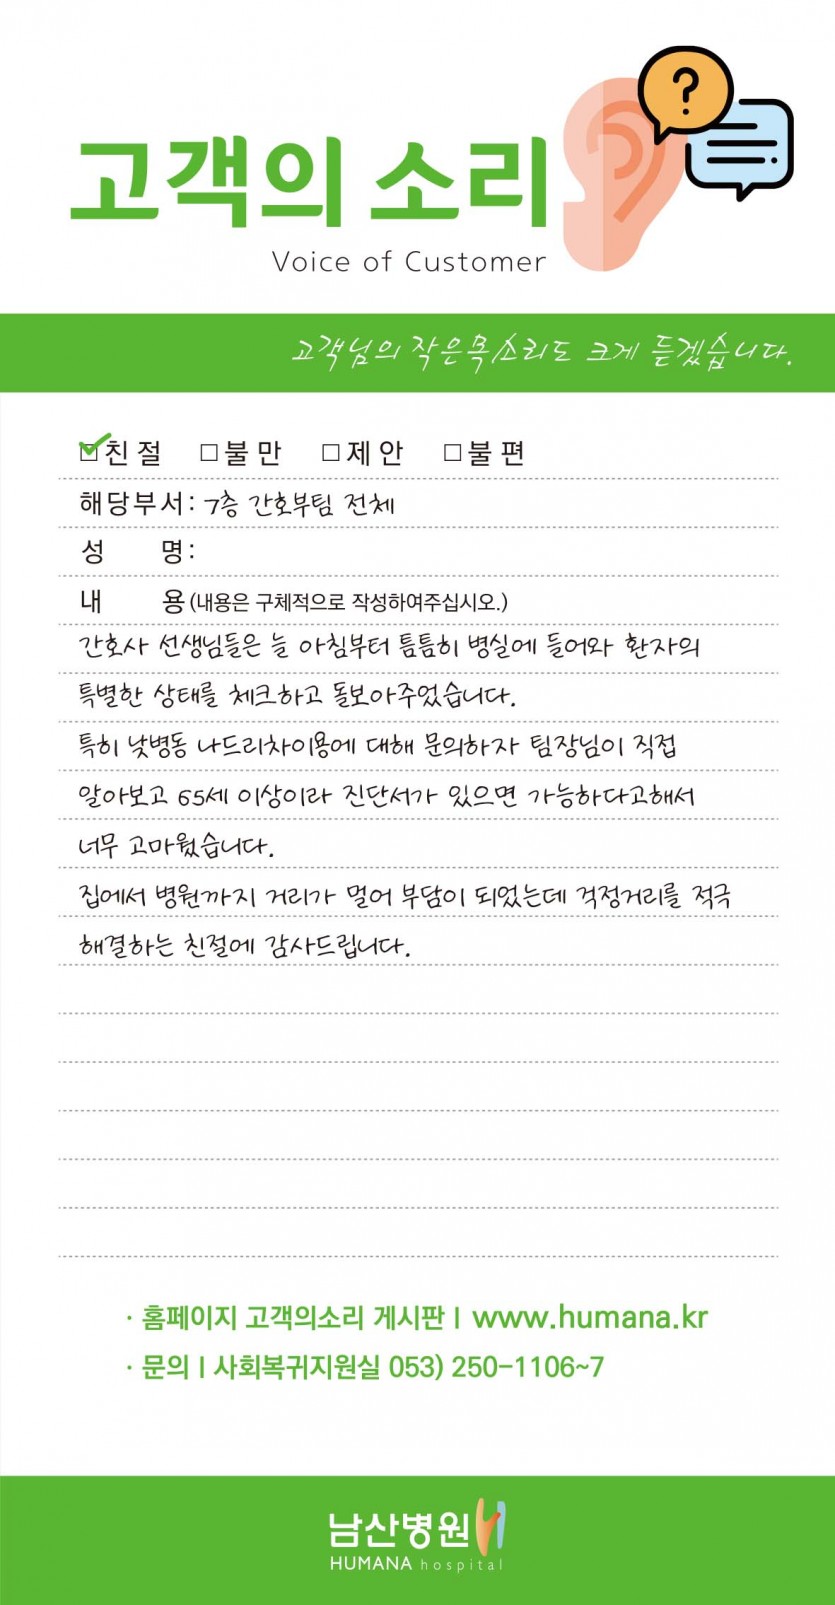 ?
고객의 소리
Voice of Customer
고객님의 작은목소리도 크게 듣겠습니다.
☑친절 □불만 □제안 □불편
해당부서: 7층 간호부팀 전체
성 명:
내 용(내용은 구체적으로 작성하여주십시오.)
간호사 선생님들은 늘 아침부터 틈틈히 병실에 들어와 환자의
특별한 상태를 체크하고 돌보아주었습니다.
특히 낮병동 나드리차이용에 대해 문의하자 팀장님이 직접
알아보고 65세 이상이라 진단서가 있으면 가능하다고해서
너무 고마웠습니다.
집에서 병원까지 거리가 멀어 부담이 되었는데 걱정거리를 적극
해결하는 친절에 감사드립니다.
· 홈페이지 고객의소리 게시판 | www.humana.kr
· 문의 | 사회복귀지원실 053) 250-1106~7
남산병원
HUMANA hospital